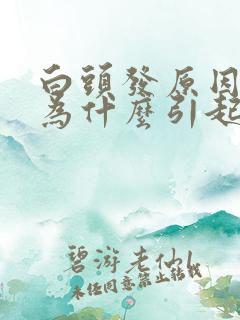 白頭發原因
為什麼引起
碧游老仙
未经同意禁止转载